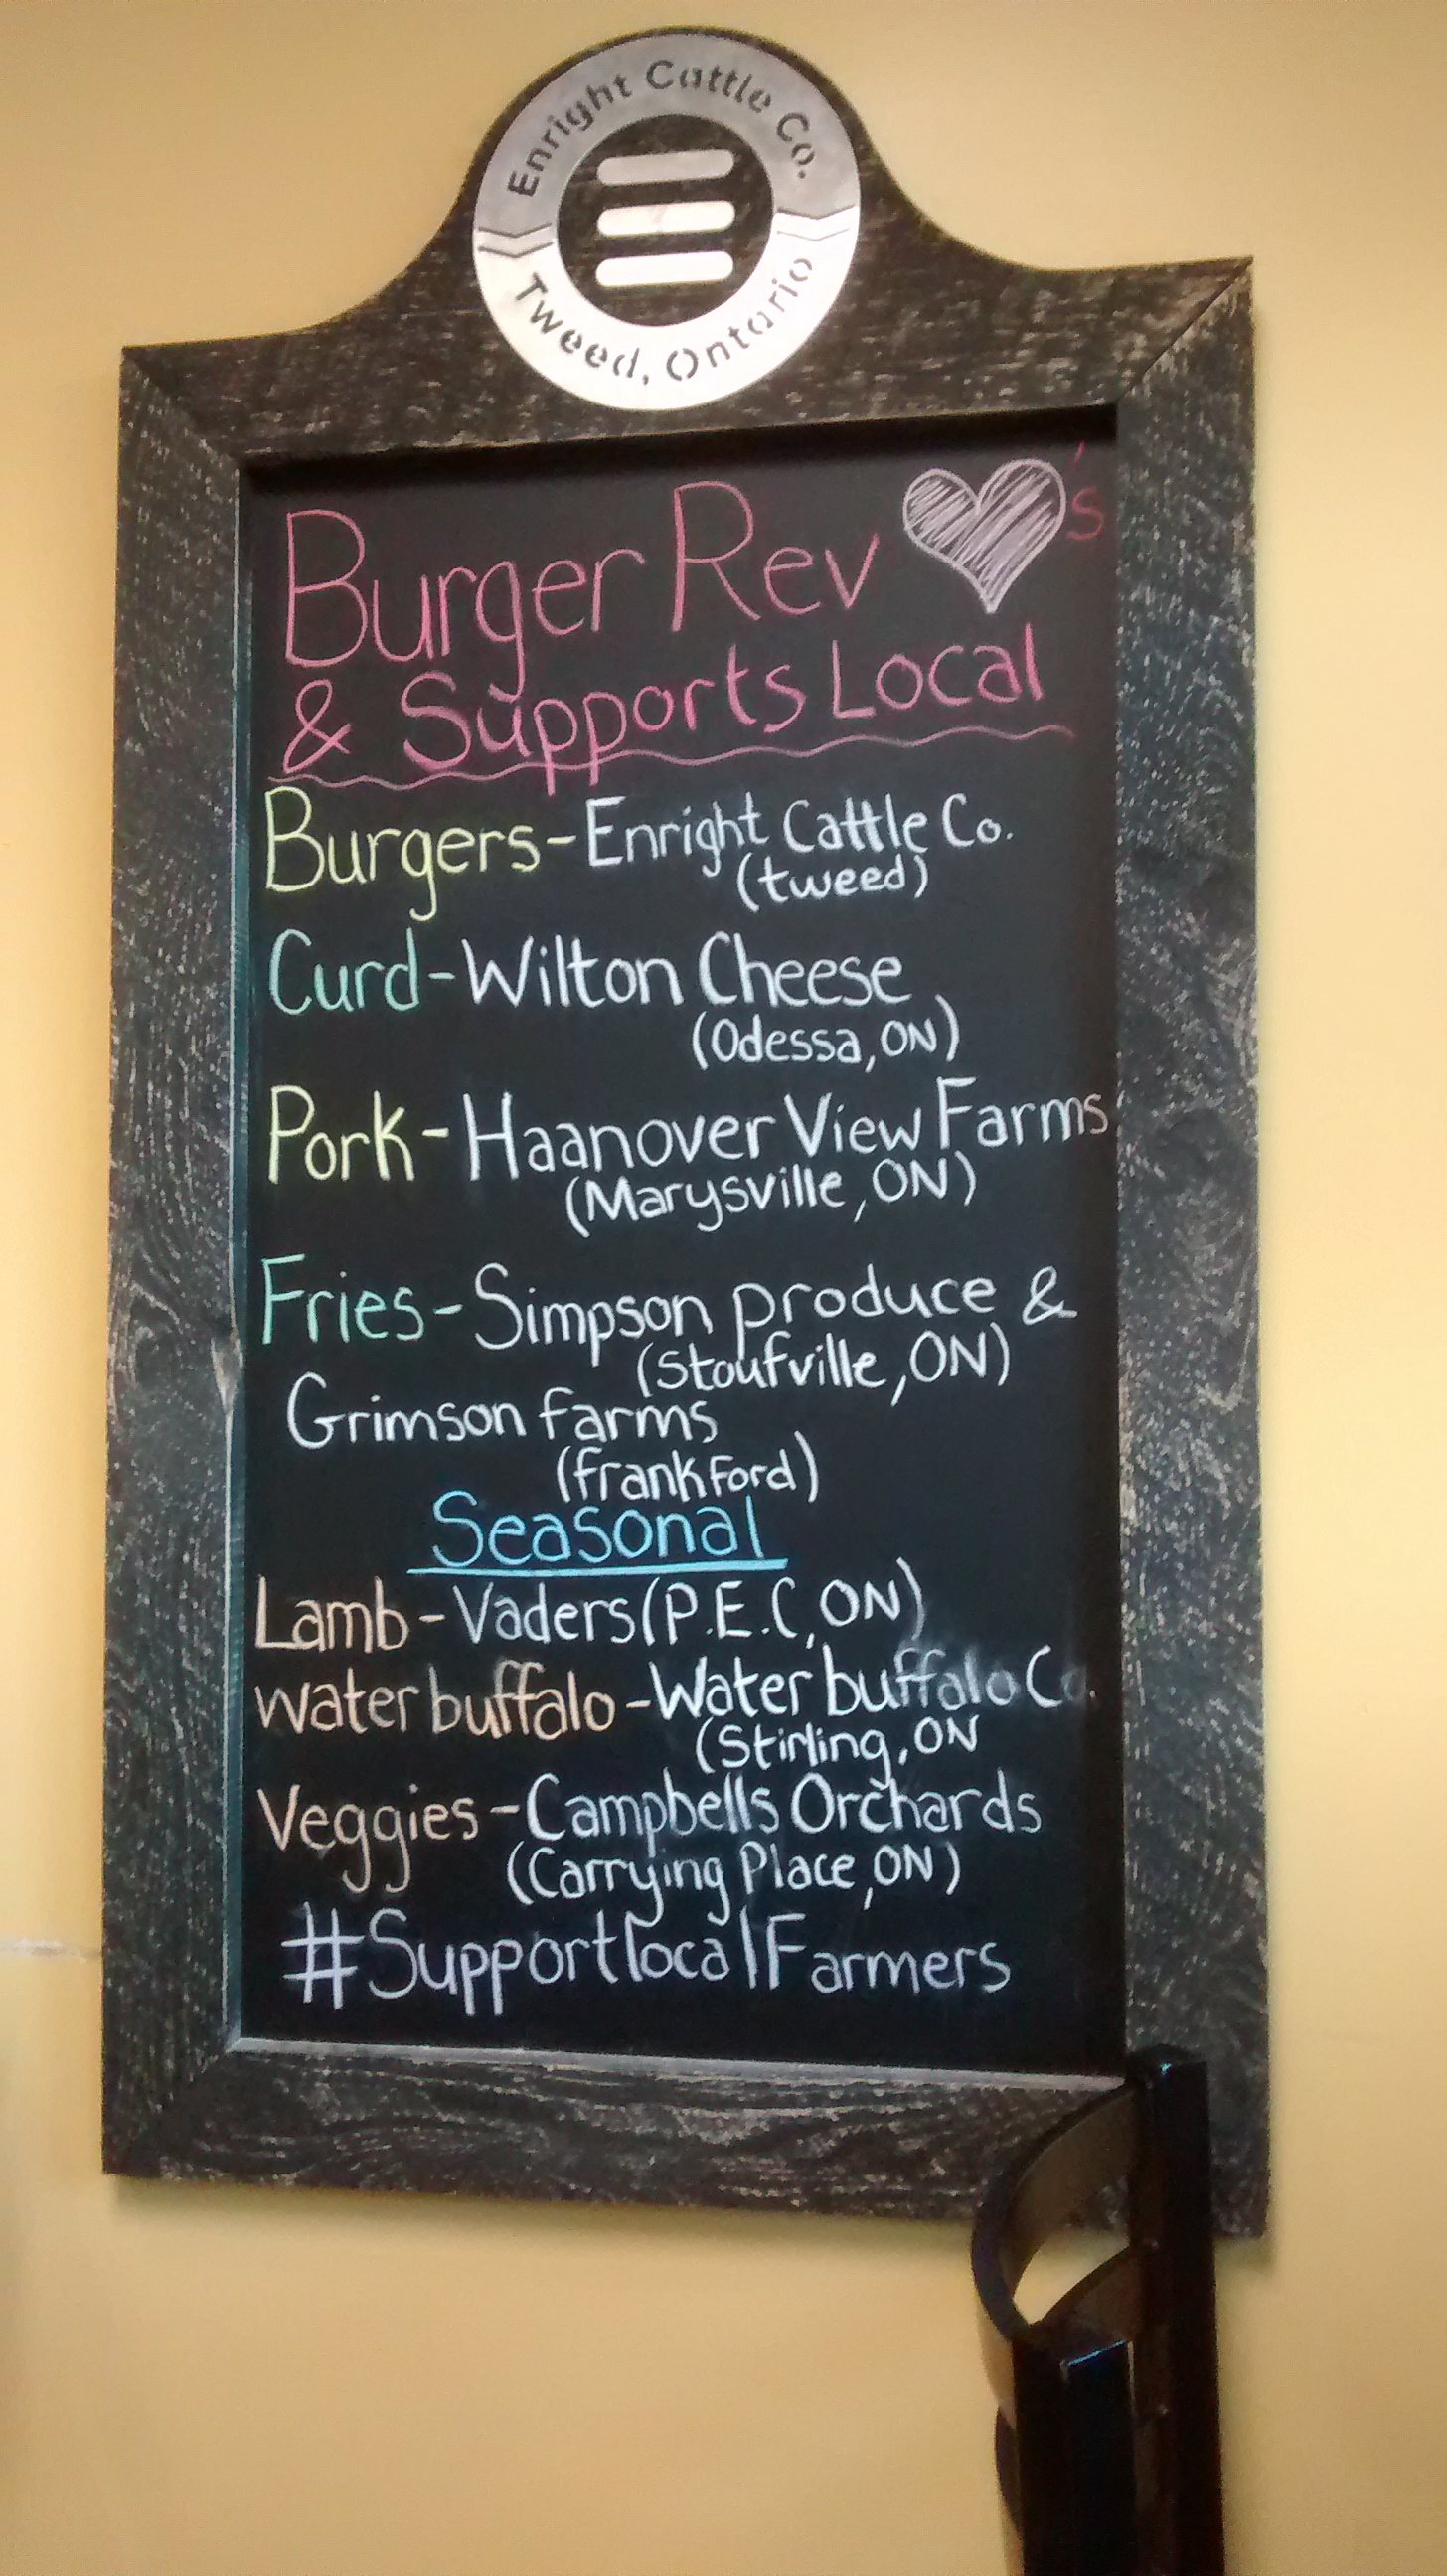 Enright Cattle Co.
Tweed, Ontario
Burger Rev ♥'s
& Supports Local
Burgers-Enright Cattle Co.
(tweed)
Curd-Wilton Cheese
(Odessa, ON)
Pork-Haanover View Farms
(Marysville, ON)
Fries-Simpson produce &
(Stoufville, ON)
Grimson farms
(frankford)
Seasonal
Lamb-Vaders (P.E.C, ON)
water buffalo-Water buffalo Co.
(Stirling, ON
Veggies-Campbells Orchards
(Carrying Place, ON)
#SupportlocalFarmers